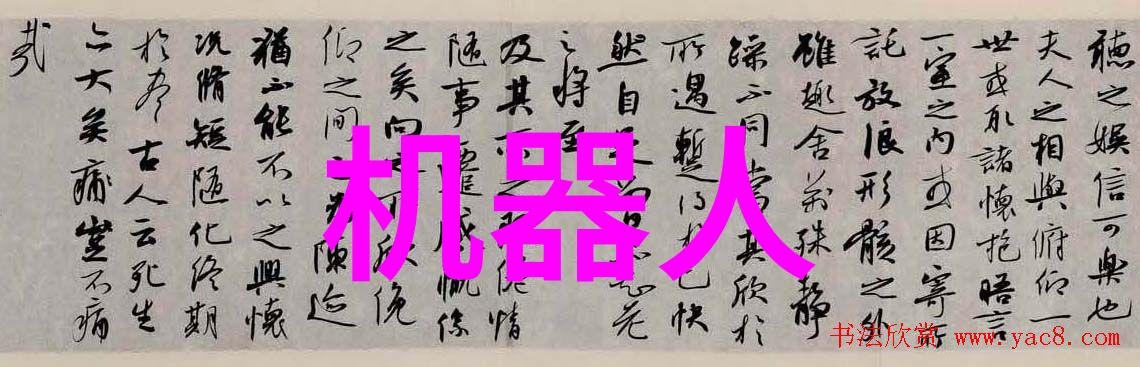 聽之娛信可樂也
夫人之相與俯仰一
世或取諸懷抱晤言
一室之內或因寄所
託放浪形骸之外
雖趣舍萬殊靜
躁不同當其欣於
所遇暫得於己快
然自足 老
之將至
及其所之 情
隨事遷感慨係
之矣向之所欣俛
仰之間 為陳迹
猶不能不以之興懷
況脩短隨化終期
於盡古人云死生
亦大矣痛豈不痛
哉
机器人
书法欣赏 www.yac8.com